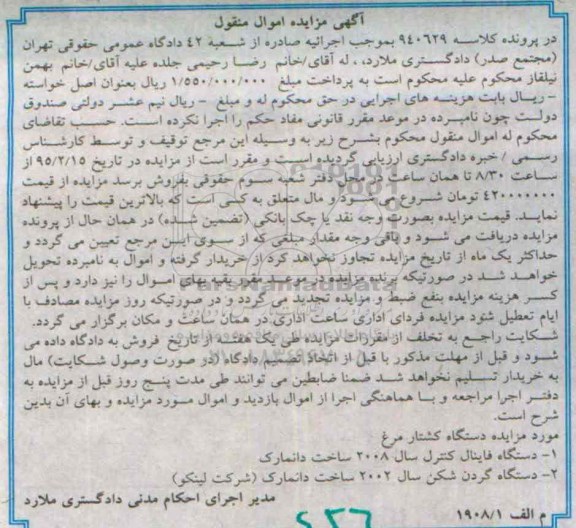 آگهی مزایده اموال منقول
در پرونده کلاسه ۹۴۰۶۲۹ بموجب اجرائیه صادره از شعبه ۴۲ دادگاه عمومی حقوقی تهران
(مجتمع صدر) دادگستری ملارد، ، له آقای/خانم رضا رحیمی جلده علیه آقای/خانم بهمن
نیلفاز محکوم علیه محکوم است به پرداخت مبلغ ۱/۵۵۰/۰۰۰/۰۰۰ ریال بعنوان اصل خواسته
- ریال بابت هزینه های اجرایی در حق محکوم له و مبلغ - ریال نیم عشر دولتی صندوق
دولت چون نامبرده در موعد مقرر قانونی مفاد حکم را اجرا نکرده است. حسب تقاضای
محکوم له اموال منقول محکوم بشرح زیر به وسیله این مرجع توقیف و توسط کارشناس
رسمی / خبره دادگستری ارزیابی گردیده است و مقرر است از مزایده در تاریخ ۹۵/۲/۱۵ از
ساعت ۸/۳۰ تا همان ساعت در محل دفتر شعبه سوم حقوقی بفروش برسد مزایده از قیمت
۴۲۰۰۰۰۰۰۰ تومان شروع می شود و مال متعلق به کسی است که بالاترین قیمت را پیشنهاد
نماید. قیمت مزایده بصورت وجه نقد یا چک بانکی (تضمین شده) در همان حال از پرونده
مزایده دریافت می شود و باقی وجه مقدار مبلغی که از سوی این مرجع تعیین می گردد و
حداکثر یک ماه از تاریخ مزایده تجاوز نخواهد کرد از خریدار گرفته و اموال به نامبرده تحویل
خواهد شد در صورتیکه برنده مزایده در موعد مقرر بقیه بهای اموال را نیز دارد و پس از
کسر هزینه مزایده بنفع ضبط و مزایده تجدید می گردد و در صورتیکه روز مزایده مصادف با
ایام تعطیل شود مزایده فردای اداری ساعت اداری در همان ساعت و مکان برگزار می گردد.
شکایت راجع به تخلف از مقررات مزایده طی یک هفته از تاریخ فروش به دادگاه داده می
شود و قبل از مهلت مذکور با قبل از اتخاذ تصمیم دادگاه (در صورت وصول شکایت) مال
به خریدار تسلیم نخواهد شد ضمنا ضابطین می توانند طی مدت پنج روز قبل از مزایده به
دفتر اجرا مراجعه و با هماهنگی اجرا از اموال بازدید و اموال مورد مزایده و بهای آن بدین
شرح است.
مورد مزایده دستگاه کشتار مرغ
۱- دستگاه فاینال کنترل سال ۲۰۰۸ ساخت دانمارک
۲- دستگاه گردن شکن سال ۲۰۰۲ ساخت دانمارک (شرکت لینکو)
مدیر اجرای احکام مدنی دادگستری ملارد
م الف ۱۹۰۸/۱